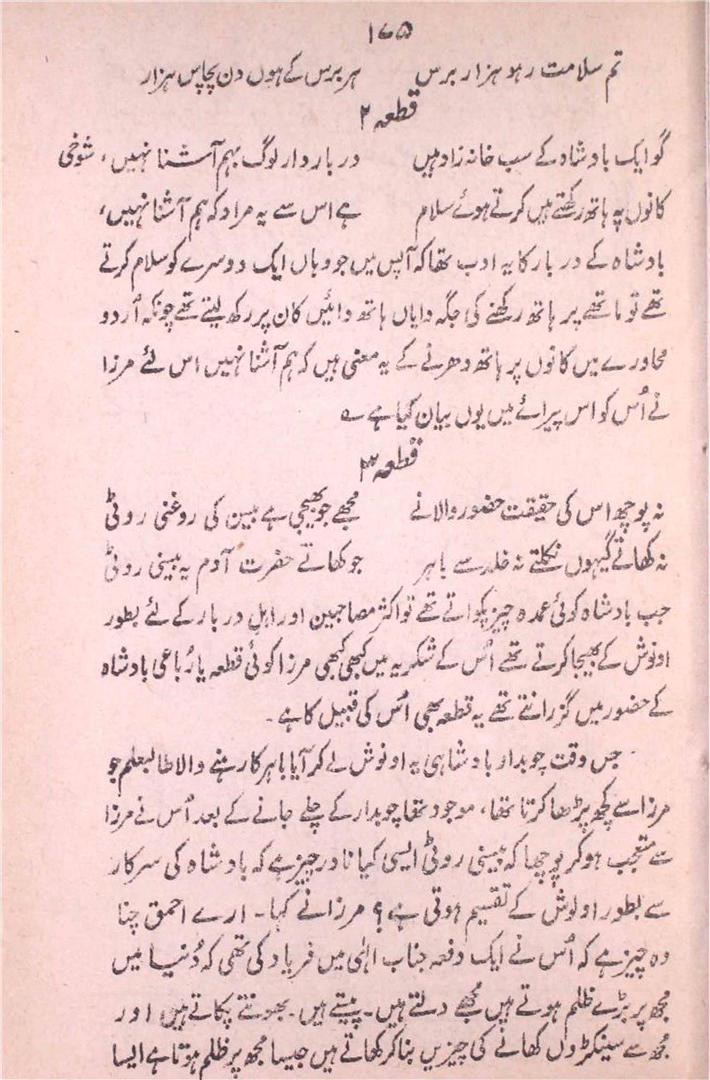 ۱۷۵
تم سلامت رہو ہزار برس ہر برس کے ہوں دن پچاس ہزار
قطعہ ۲
گو ایک بادشاہ کے سب خانہ زاد ہیں دربار دار لوگ بہم آشنا نہیں، شوخی
کانوں پہ ہاتھ رکھتے ہیں کرتے ہوئے سلام ہے اس سے یہ مراد کہ ہم آشنا نہیں،
بادشاہ کے دربار کا یہ ادب تھا کہ آپس میں جو وہاں ایک دوسرے کو سلام کرتے
تھے تو ماتھے پر ہاتھ رکھنے کی جگہ دایاں ہاتھ دائیں کان پر رکھ لیتے تھے چونکہ اُردو
محاورے میں کانوں پر ہاتھ دھرنے کے یہ معنی ہیں کہ ہم آشنا نہیں اس لئے مرزا
نے اُس کو اس پیرائے میں یوں بیان کیا ہے ؎
قطعہ ۳
نہ پوچھ اس کی حقیقت حضور والا نے مجھے جو بھیجی ہے بیسن کی روغنی روٹی
نہ کھاتے گیہوں نکلتے نہ خلد سے باہر جو کھاتے حضرت آدم یہ بیسنی روٹی
جب بادشاہ کوئی عمدہ چیز پکواتے تھے تو اکثر مصاحبین اور اہلِ دربار کے لئے بطور
اولوش کے بھیجا کرتے تھے اُس کے شکریہ میں کبھی کبھی مرزا کوئی قطعہ یا رُباعی بادشاہ
کے حضور میں گزرانتے تھے یہ قطعہ بھی اُسی قبیل کا ہے۔
جس وقت چوبدار بادشاہی یہ اونوش لے کر آیا باہر کا رہنے والا طالبعلم جو
مرزا سے کچھ پڑھا کرتا تھا، موجود تھا چوبدار کے چلے جانے کے بعد اُس نے مرزا
سے متعجب ہو کر پوچھا کہ بیسنی روٹی ایسی کیا نادر چیز ہے کہ بادشاہ کی سرکار
سے بطور اولوش کے تقسیم ہوتی ہے؟ مرزا نے کہا۔ ارے احمق چنا
وہ چیز ہے کہ اُس نے ایک دفعہ جناب الٰہی میں فریاد کی تھی کہ دُنیا میں
مجھ پر بڑے ظلم ہوتے ہیں مجھے دلتے ہیں۔ پیستے ہیں۔ بھونتے پکاتے ہیں اور
مجھ سے سینکڑوں کھانے کی چیزیں بنا کر کھاتے ہیں جیسا مجھ پر ظلم ہوتا ہے ایسا